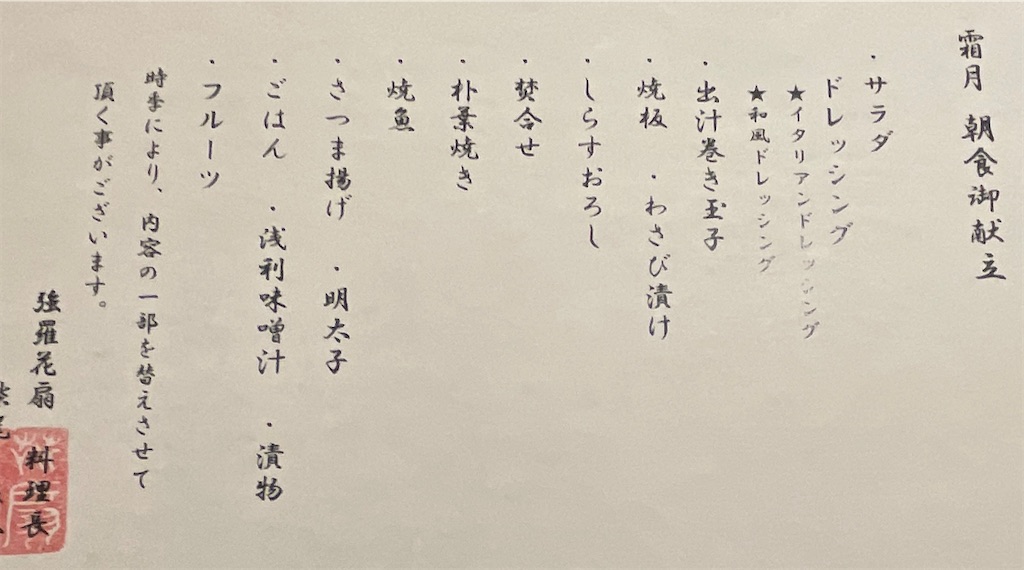 霜月 朝食御献立
・サラダ
ドレッシング
★イタリアンドレッシング
★和風ドレッシング
・出汁巻き玉子
・焼板 ・わさび漬け
・しらすおろし
・焚合せ
・朴葉焼き
・焼魚
・さつま揚げ ・明太子
・ごはん ・浅利味噌汁 ・漬物
・フルーツ
時季により、内容の一部を替えさせて
頂く事がございます。
強羅花扇 料理長